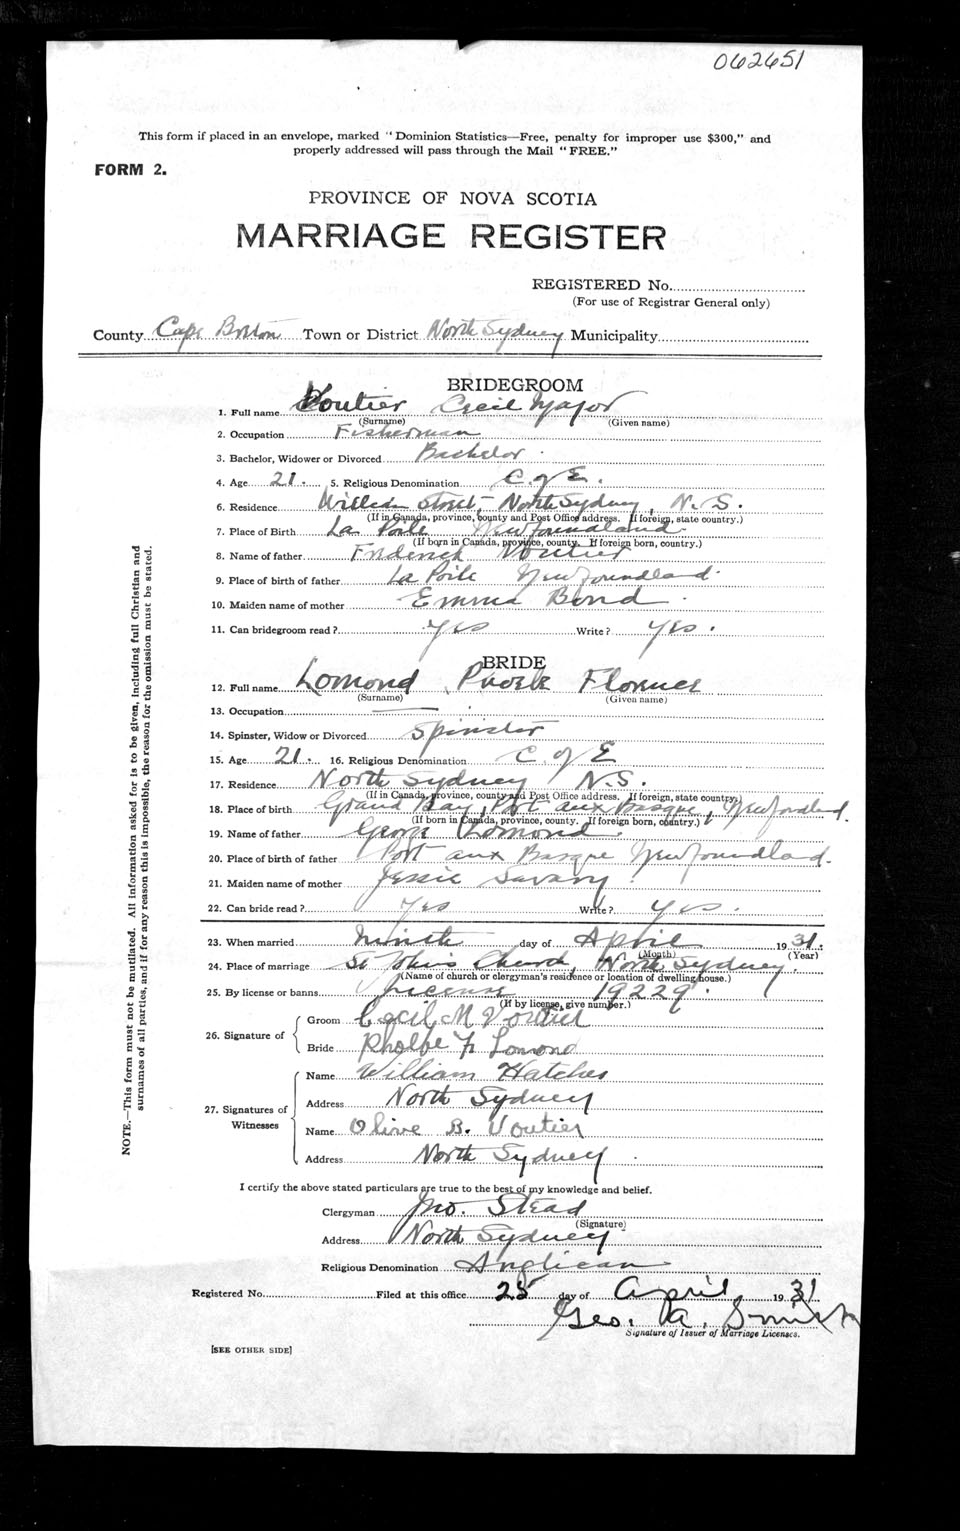 062651
This form if placed in an envelope, marked "Dominion Statistics—Free, penalty for improper use $300," and
properly addressed will pass through the Mail "FREE."
FORM 2.
PROVINCE OF NOVA SCOTIA
MARRIAGE REGISTER
REGISTERED No.
(For use of Registrar General only)
County Cape Breton Town or District North Sydney Municipality
BRIDEGROOM
1. Full name Voutier Cecil Major
(Surname) (Given name)
2. Occupation Fisherman
3. Bachelor, Widower or Divorced Bachelor
4. Age 21. 5. Religious Denomination C. of E.
6. Residence Street, North Sydney, N.S.
(If in Canada, province, county and Post Office address. If foreign, state country.)
7. Place of Birth La Poile Newfoundland
(If born in Canada, province, county. If foreign born, country.)
8. Name of father Frederick Voutier
9. Place of birth of father La Poile Newfoundland.
10. Maiden name of mother Emma Bond.
11. Can bridegroom read? Yes Write? Yes.
BRIDE
12. Full name Lomond Phoebe Florence
(Surname) (Given name)
13. Occupation
14. Spinster, Widow or Divorced Spinster
15. Age 21. 16. Religious Denomination C. of E
17. Residence North Sydney N.S.
(If in Canada, province, county and Post Office address. If foreign, state country.)
18. Place of birth Grand Bay, Port aux Basque, Newfoundland.
(If born in Canada, province, county. If foreign born, country.)
19. Name of father George Lomond.
20. Place of birth of father Port aux Basque Newfoundland.
21. Maiden name of mother Jessie Savary.
22. Can bride read? Yes Write? Yes.
23. When married Ninth day of April 1931.
(Month) (Year)
24. Place of marriage St John's Church, North Sydney.
(Name of church or clergyman's residence or location of dwelling house.)
25. By license or banns License 19229.
(If by license, give number.)
26. Signature of Groom Cecil M Voutier
Bride Pholbe F Lomond
27. Signatures of Witnesses Name William Hatcher
Address North Sydney
Name Olive B. Voutier
Address North Sydney.
I certify the above stated particulars are true to the best of my knowledge and belief.
Clergyman Jno. Stead
(Signature)
Address North Sydney
Religious Denomination Anglican
Registered No. Filed at this office 25 day of April 1931
Geo. A. Smith
Signature of Issuer of Marriage Licenses.
[SEE OTHER SIDE]
NOTE.—This form must not be mutilated. All information asked for is to be given, including full Christian and
surnames of all parties, and if for any reason this is impossible, the reason for the omission must be stated.